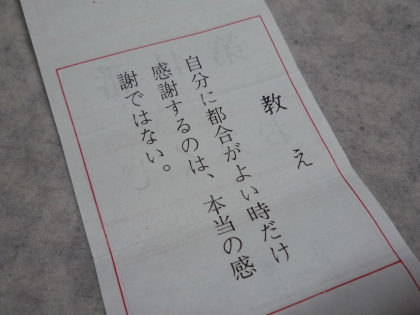 教え
自分に都合がよい時だけ
感謝するのは、本当の感
謝ではない。